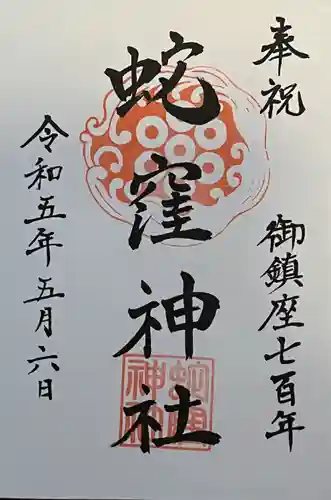 奉祝
御鎮座七百年
蛇窪神社
令和五年五月六日
蛇窪神社